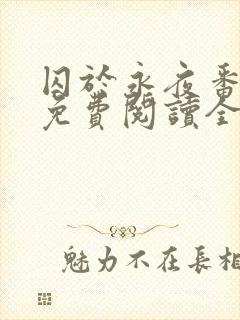 囚於永夜番
免費閱讀全
魅力不在長相